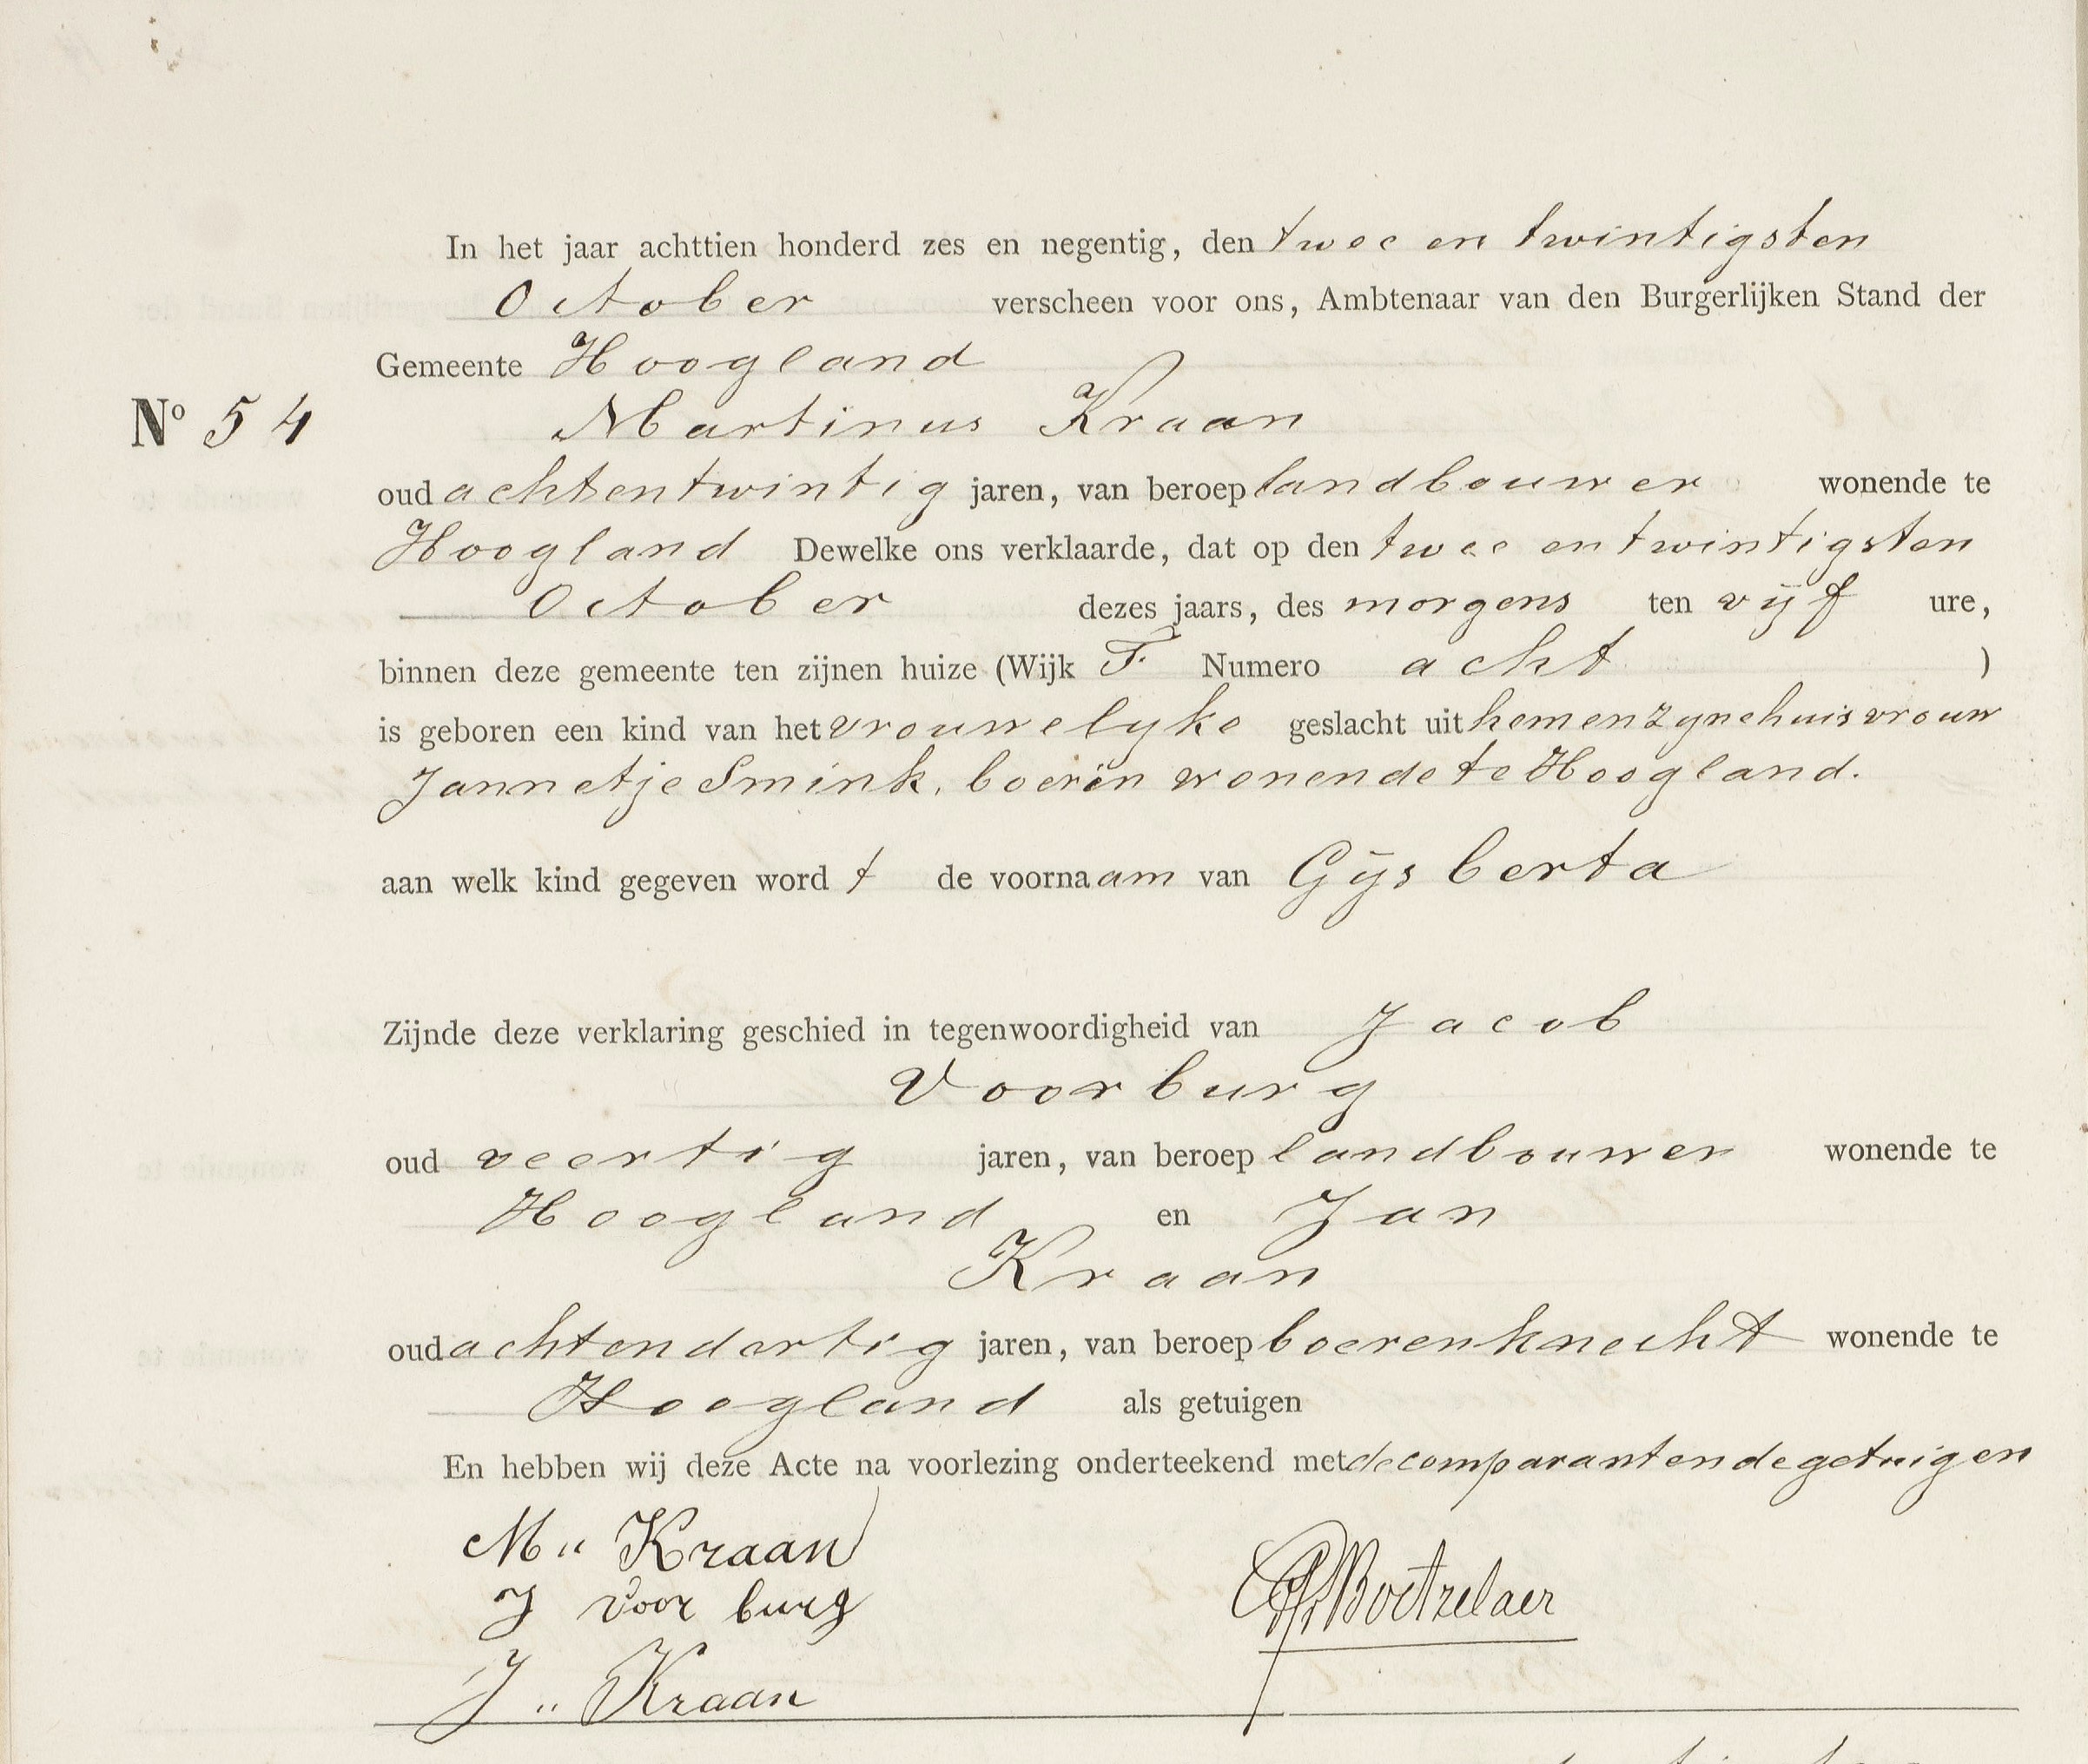 In het jaar achttien honderd zes en negentig, den twee en twintigsten
October verscheen voor ons, Ambtenaar van den Burgerlijken Stand der
Gemeente Hoogland
No 54 Martinus Kraan
oud achtentwintig jaren, van beroep landbouwer wonende te
Hoogland Dewelke ons verklaarde, dat op den twee en twintigsten
October dezes jaars, des morgens ten vijf ure,
binnen deze gemeente ten zijnen huize (Wijk F. Numero acht )
is geboren een kind van het vrouwelyke geslacht uit hem en zyne huisvrouw
Jannetje Smink, boerin wonende te Hoogland.
aan welk kind gegeven word t de voornaam van Gijsberta
Zijnde deze verklaring geschied in tegenwoordigheid van Jacob
Voorburg
oud veertig jaren, van beroep landbouwer wonende te
Hoogland en Jan
Kraan
oud achtendertig jaren, van beroep boerenknecht wonende te
Hoogland als getuigen
En hebben wij deze Acte na voorlezing onderteekend met de comparant en de getuigen
M" Kraan
J Voorburg
Boetzelaer
J" Kraan